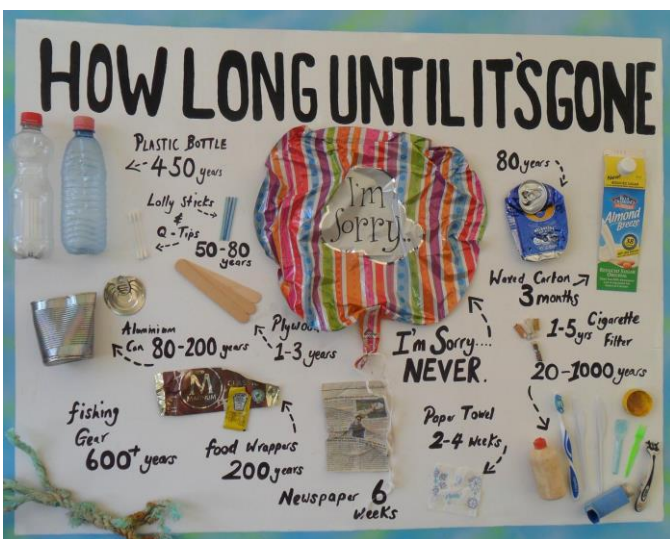 HOW LONG UNTIL IT'S GONE
PLASTIC BOTTLE
450 years
Lolly Sticks
&
Q-Tips
50-80
years
I'm
Sorry..
80 years
Almond
Breeze
Waxed Carton
3 months
Aluminium
Can 80-200 years
Plywood
1-3 years
I'm Sorry....
NEVER.
1-5 yrs Cigarette
Filter
20-1000 years
M
fishing
Gear
600+ years
food Wrappers
200 years
Newspaper 6
weeks
Paper Towel
2-4 weeks